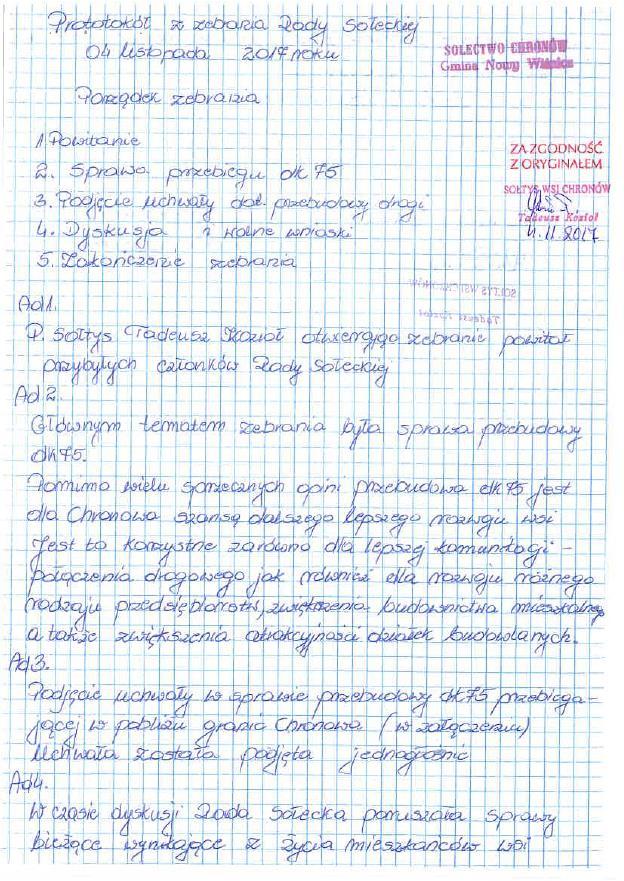 Prototokół z zebrania Rady Sołeckiej
04 listopada 2017 roku
SOŁECTWO CHRONÓW
Gmina Nowy Wiśnicz
Porządek zebrania
1. Powitanie
2. Sprawa przebiegu dk 75
3. Podjęcie uchwały dot. przebudowy drogi
4. Dyskusja i wolne wnioski
5. Zakończenie zebrania
ZA ZGODNOŚĆ
Z ORYGINAŁEM
SOŁTYS WSI CHRONÓW
Tadeusz Kozioł
4.11.2017
SOŁTYS WSI CHRONÓW
Ad1.
P. Sołtys Tadeusz Kozioł otwierając zebranie powitał
przybyłych członków Rady Sołeckiej
Ad 2.
Głównym tematem zebrania była sprawa przebudowy
dk 75.
Pomimo wielu sprzecznych opini przebudowa dk 75 jest
dla Chronowa szansą dalszego lepszego rozwoju wsi
Jest to korzystne zarówno dla lepszej komunikacji -
połączenia drogowego jak również dla rozwoju różnego
rodzaju przedsiębiorstw, zwiększenia budownictwa mieszkalnego
a także zwiększenia atrakcyjności działek budowlanych.
Ad3.
Podjęcie uchwały w sprawie przebudowy dk 75 przebiega-
jącej w pobliżu granic Chronowa (w załączeniu)
Uchwała została podjęta jednogłośnie
Ad4.
W czasie dyskusji Rada Sołecka poruszała sprawy
bieżące wynikające z życia mieszkańców wsi